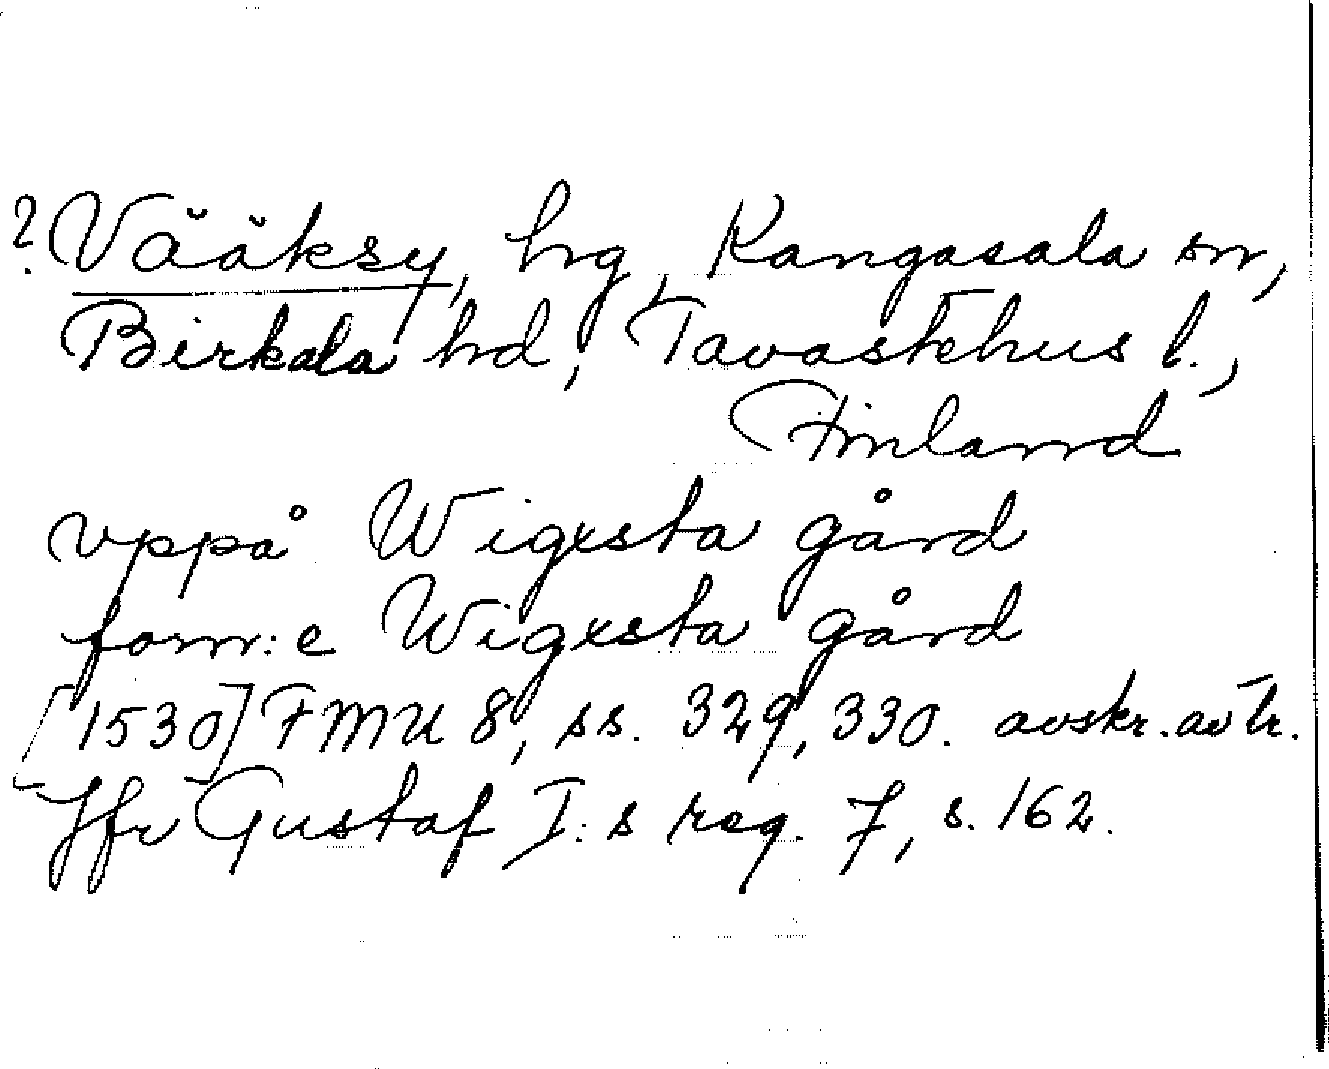 ? Vääksy, hg, Kangasala sn,
Birkala hd, Tavastehus l.,
Finland
vppå Wigxsta gård
forn:e Wigxsta gård
[1530] FMU 8, ss. 329, 330. avskr. av tr.
Jfr Gustaf I:s reg. 7, s. 162.